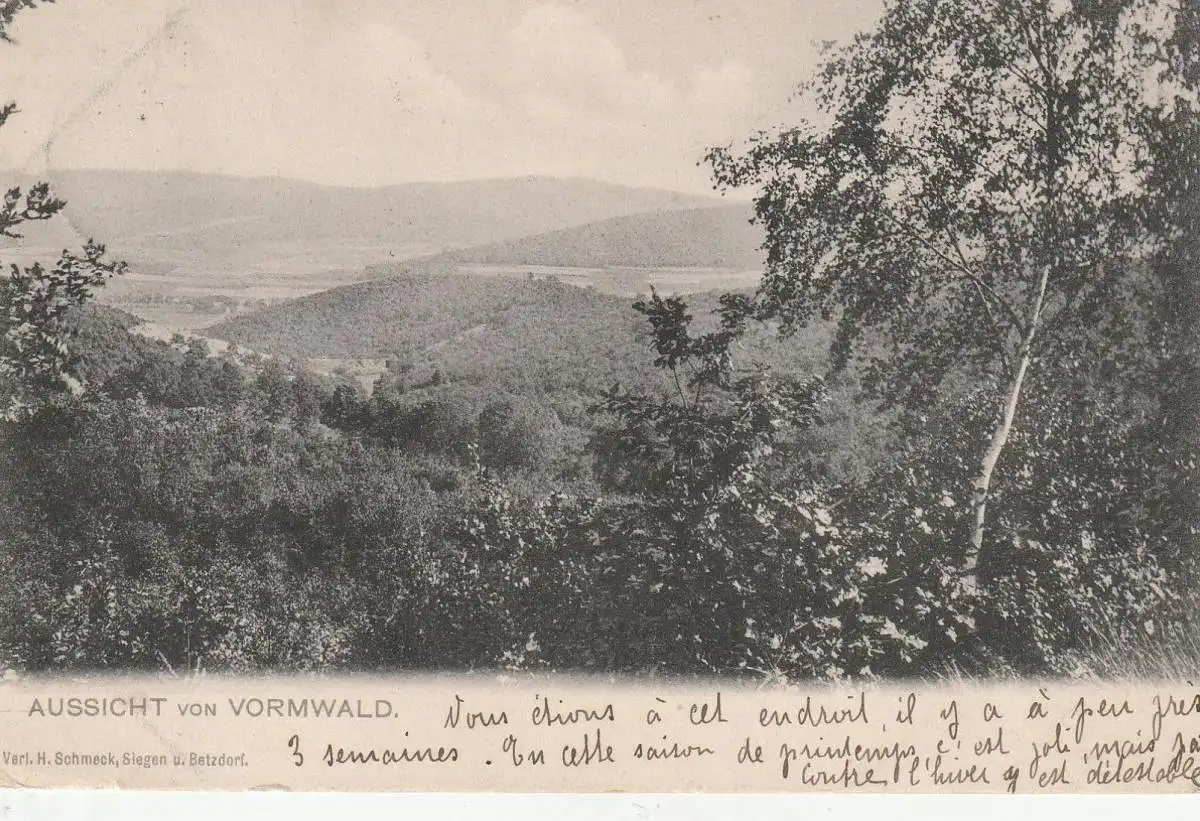 AUSSICHT VON VORMWALD.
Verl. H. Schmeck, Siegen u. Betzdorf.
Nous étions à cet endroit, il y a à peu près
3 semaines. En cette saison de printemps, c'est joli, mais par
contre, l'hiver y est détestable